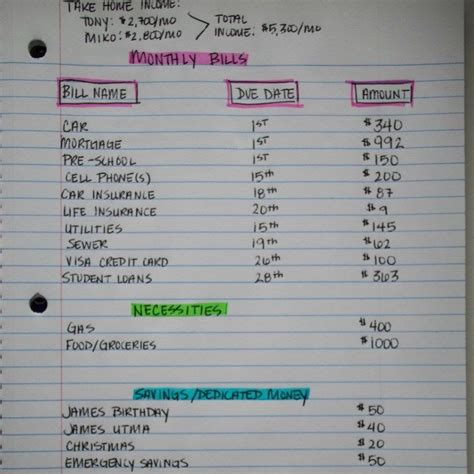 TAKE HOME INCOME:
TONY: $2,700/MO TOTAL
MIKO: $2,800/MO INCOME: $5,300/MO
MONTHLY BILLS
BILL NAME DUE DATE AMOUNT
CAR 1ST $340
MORTGAGE 1ST $992
PRE-SCHOOL 1ST $150
CELL PHONE(S) 15th $200
CAR INSURANCE 18th $87
LIFE INSURANCE 20th $9
UTILITIES 15th $145
SEWER 19th $62
VISA CREDIT CARD 26th $100
STUDENT LOANS 28th $363
NECESSITIES
GAS $400
FOOD/GROCERIES $1000
SAVINGS/DEDICATED MONEY
JAMES BIRTHDAY $50
JAMES UTMA $40
CHRISTMAS $20
EMERGENCY SAVINGS $50